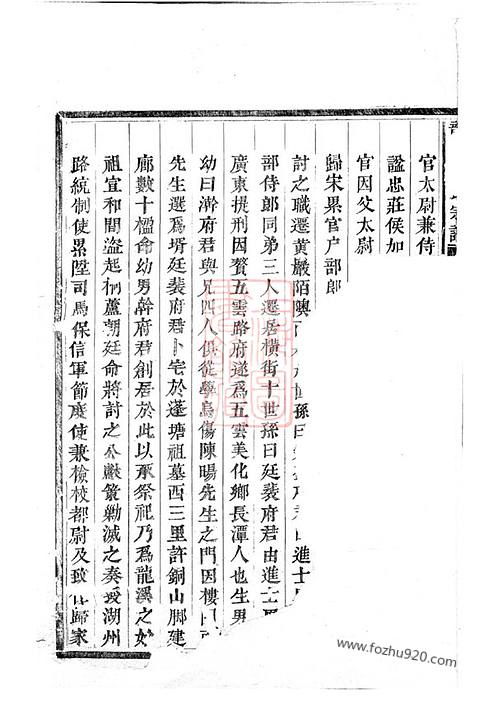 宗譜
官太尉兼侍
諡忠莊侯加
官因父太尉
歸宋累官户部郎
討之職遷黄巖陌 孫曰 進士
部侍郎同弟三人遷居橫街十世孫曰廷裴府君由進士
廣東提刑因贅五雲路府遂爲五雲美化鄉長潭人也生男
幼曰澣府君與兄四人俱從學烏傷陳暘先生之門因樓
先生選爲壻廷裴府君卜宅於蓬塘祖墓西三里許銅山脚建
廊數十楹命幼男幹府君創居於此以承祭祀乃爲龍溪之始
祖宣和間盜起桐蘆朝廷命將討之公獻策勦滅之奏授湖州
路統制使累陞司馬保信軍節度使兼檢校都尉及致仕歸家
www.fozhu920.com